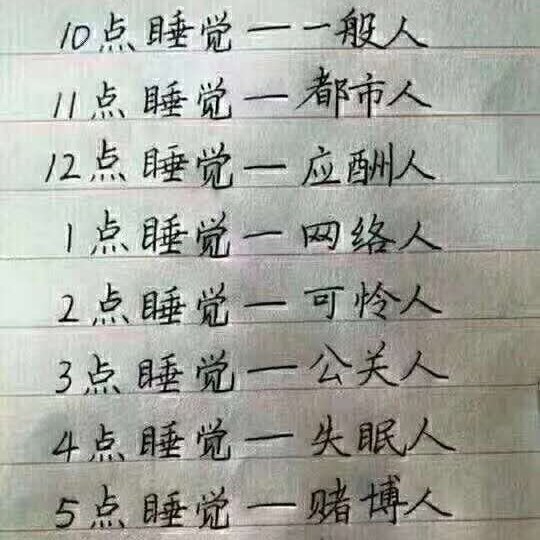 10点睡觉一一般人
11点睡觉一都市人
12点睡觉一应酬人
1点睡觉一网络人
2点睡觉一可怜人
3点睡觉一公关人
4点睡觉一失眠人
5点睡觉一赌博人